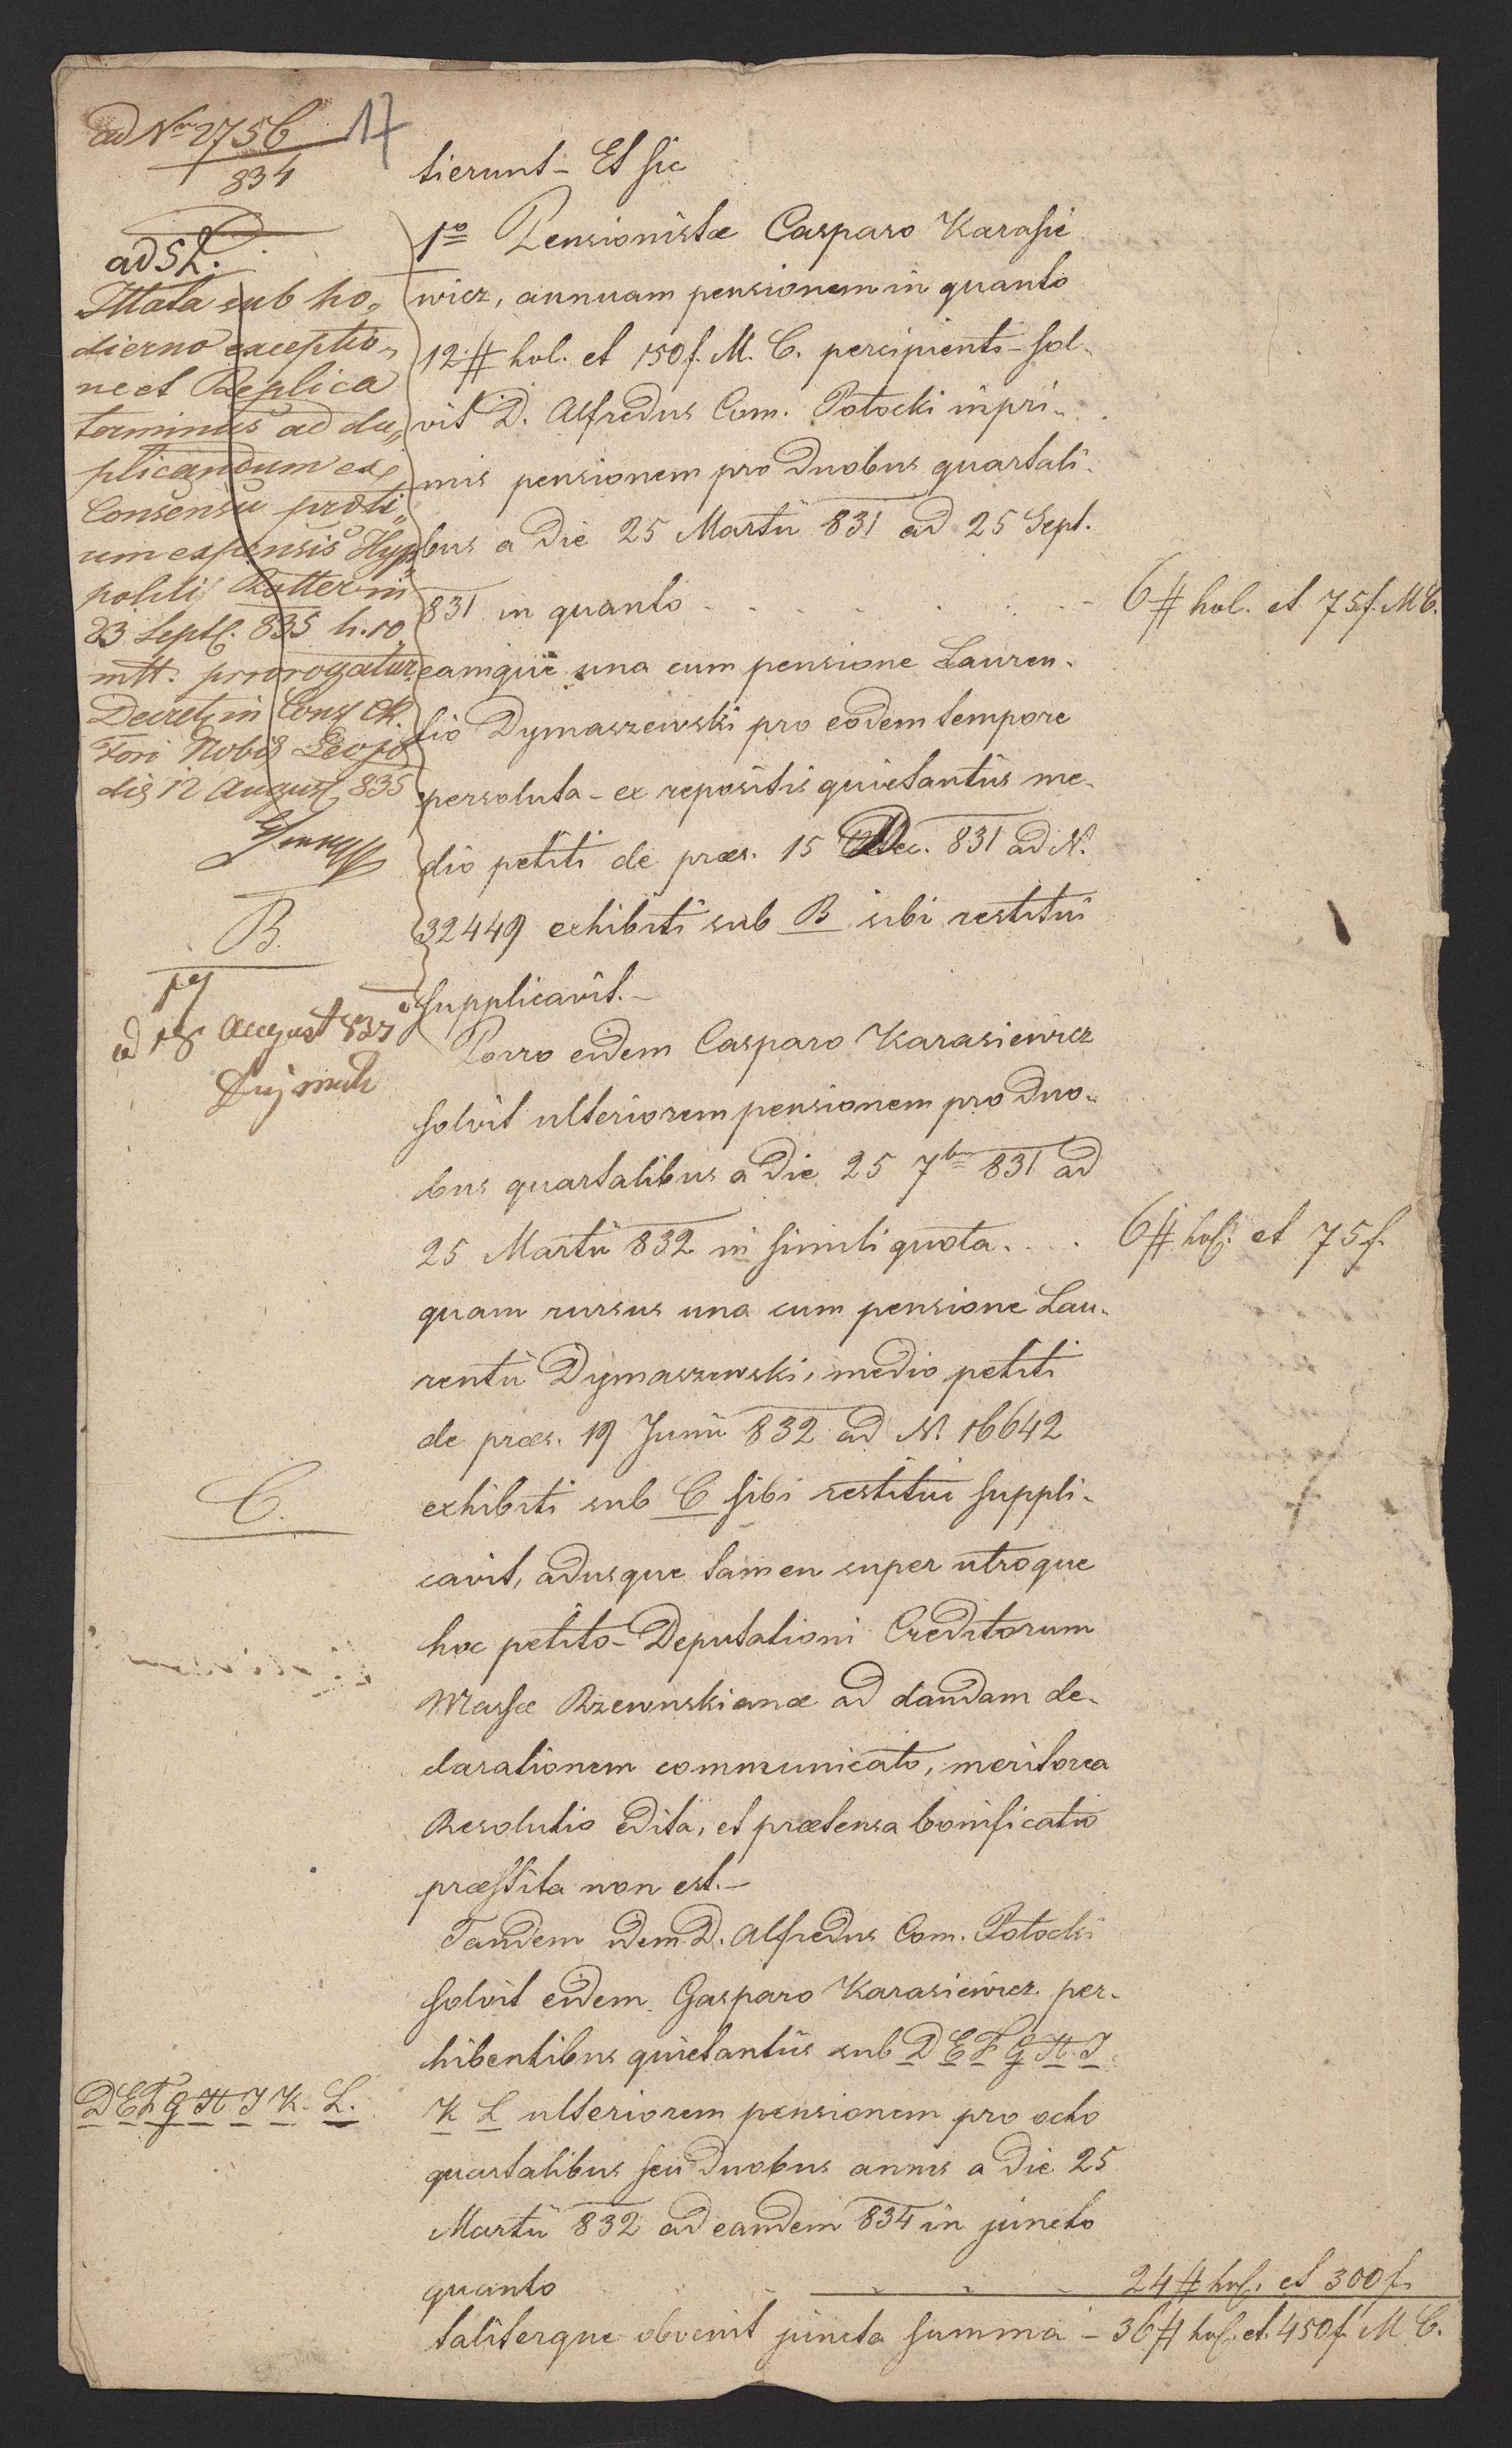 ad Nm 2756 17
834
ad 52.
Illata sub ho„
dierno exceptio„
ne et Replica
terminus ad du„
plicandum ex
Consensu parti„
um expensis Hyp„
politi Rutter in
23 Septb. 835 h. 10
mtt. prorogatur
Decret in Cons. CR.
Fori Nob. Leopo
die 12 August 835
B.
ad 18 August 835
C.
D E F G H I K. L.
tierunt – Et sic
1o Pensionistæ Casparo Karasie
wicz, annuam pensionem in quanto
12 # hol. et 150 f. M. C. percipienti – sol„
vit D. Alfredus Com. Potocki inpri„
mis pensionem pro duobus quartali„
bus a die 25 Martii 831 ad 25 Sept.
831 in quanto . . . . . . 6 # hol. et 75 f. MC.
eamque una cum pensione Lauren„
tio Dymaszewski pro eodem tempore
persoluta – ex repositis quietantiis me„
dio petiti de præs. 15 Dec. 831 ad N.
32449 exhibiti sub B sibi restitui
supplicavit. –
Porro eidem Casparo Karasiewicz
solvit ulteriorem pensionem pro duo„
bus quartalibus a die 25 7br 831 ad
25 Martii 832 in simili quota . . . 6 # hol. et 75 f.
quam rursus una cum pensione Lau„
rentii Dymaszewski, medio petiti
de præs. 19 Junii 832 ad N. 16642
exhibiti sub C sibi restitui suppli„
cavit, adusque tamen super utroque
hoc petito – Deputationi Creditorum
Massæ Rzewuskianæ ad dandam de„
clarationem communicato, meritorea
Resolutio edita, et prætensa bonificatio
præstita non est. –
Tandem idem D. Alfredus Com. Potocki
solvit eidem Gasparo Karasiewicz per„
hibentibus quietantiis sub D E F G H. I
K L ulteriorem pensionem pro octo
quartalibus seu duobus annis a die 25
Martii 832 ad eandem 834 in juncto
quanto - - - 24 # hol. et 300 f.
taliterque obvenit juncta summa – 36 # hol. et 450 f. M C.